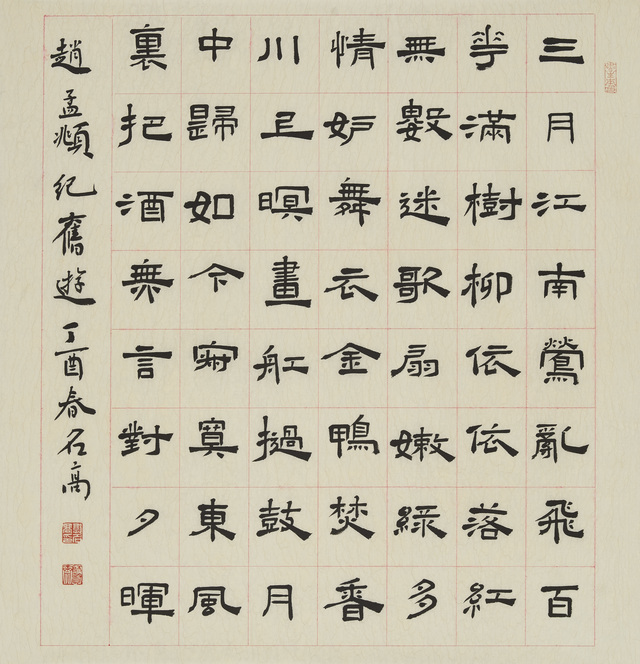 三月江南鶯亂飛百
花滿樹柳依依落紅
無數迷歌扇嫩綠多
情妒舞衣金鴨焚香
川上暝畫舡撾鼓月
中歸如今寂寞東風
裏把酒無言對夕暉
趙孟頫紀舊遊丁酉春名高